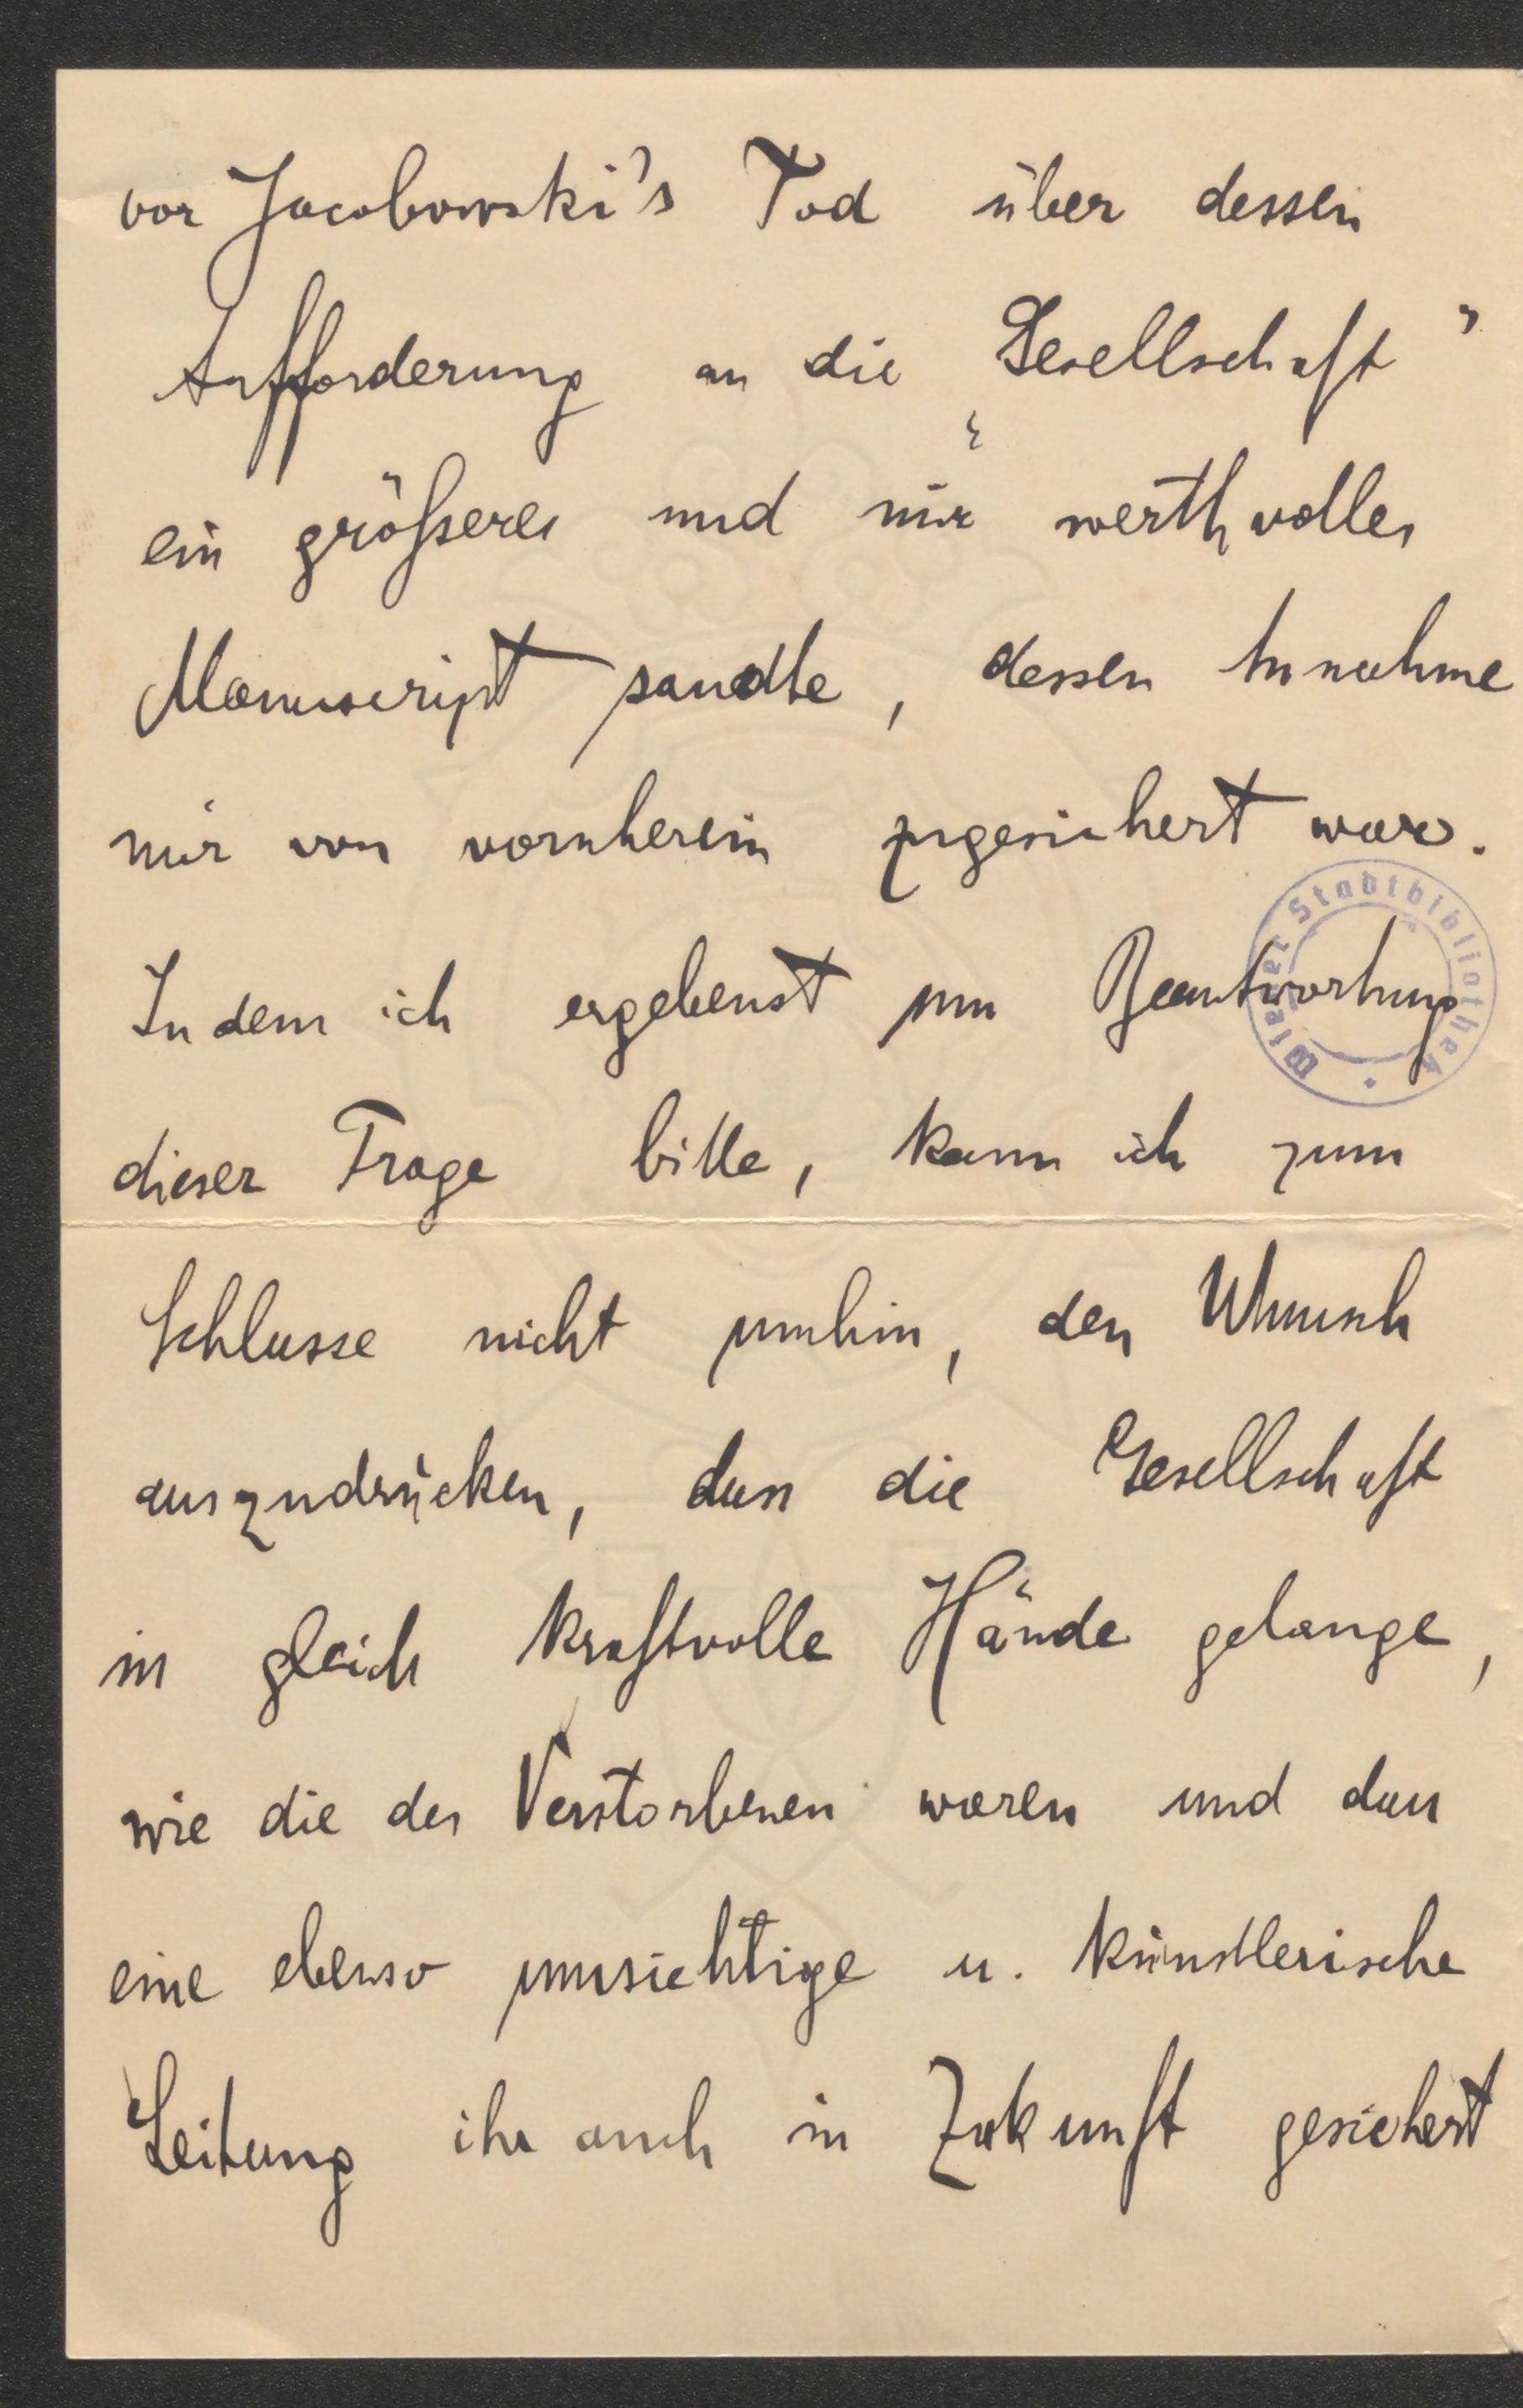 vor Jacobowski's Tod über dessen
Aufforderung an die „Gesellschaft”
ein größeres und mir werthvolles
Manuscript sandte, dessen Annahme
mir von vornherein zugesichert war.
Wiener Stadtbibliothek
Indem ich ergebenst um Beantwortung
dieser Frage bitte, kann ich zum
Schlusse nicht umhin, den Wunsch
auszudrücken, dass die Gesellschaft
in gleich kraftvolle Hände gelange,
wie die des Verstorbenen waren und dass
eine ebenso umsichtige u. künstlerische
Leitung ihr auch in Zukunft gesichert